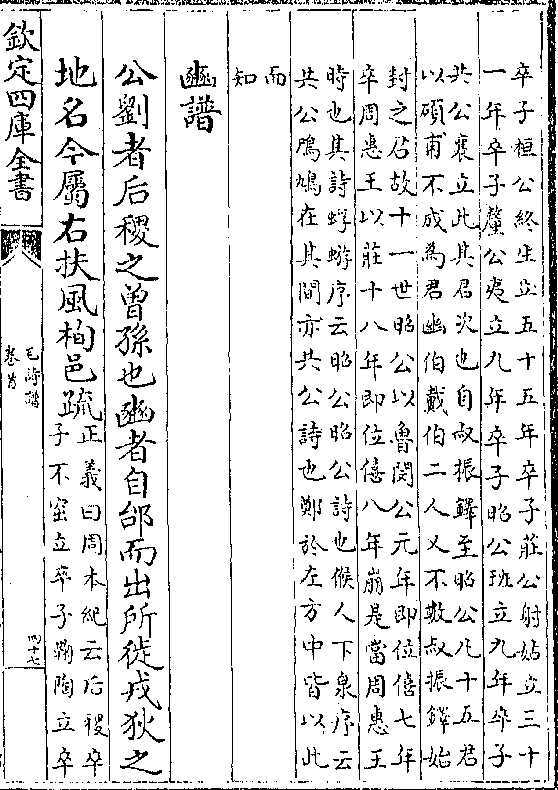 卒子桓公終生立五十五年卒子莊公射姑立三十
一年卒子釐公夷立九年卒子昭公班立九年卒子
共公襄立此其君次也自叔振鐸至昭公凡十五君
以碩甫不成為君幽伯戴伯二人又不數叔振鐸始
封之君故十一世昭公以魯閔公元年即位僖七年
卒周惠王以莊十八年即位僖八年崩是當周惠王
時也其詩蜉蝣序云昭公昭公詩也候人下泉序云
共公鳲鳩在其間亦共公詩也鄭於左方中皆以此
而
知
豳譜
公劉者后稷之曾孫也豳者自邰而出所徙戎狄之
地名今屬右扶風栒邑疏
正義曰周本紀云后稷卒
子不窋立卒子鞠陶立卒
欽定四庫全書
毛詩譜
卷首
四十七